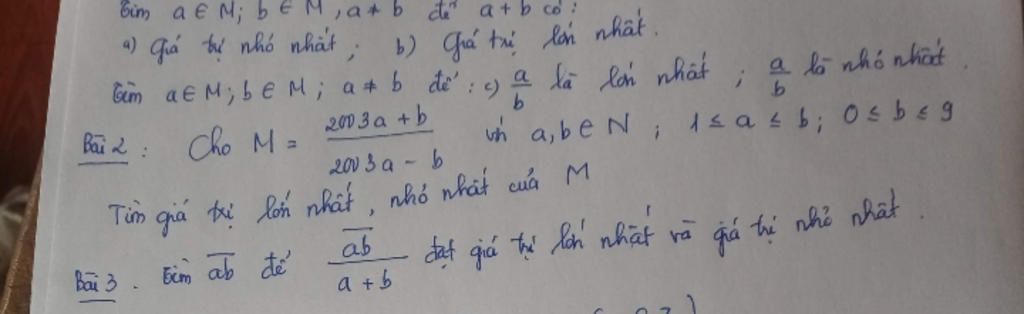 Tìm a ∈ M; b ∈ M, a ≠ b để a + b có:
a) Giá trị nhỏ nhất; b) Giá trị lớn nhất.
Tìm a ∈ M; b ∈ M; a ≠ b để: c) a/b là lớn nhất; a/b là nhỏ nhất.
Bài 2: Cho M = (2003a + b)/(2003a - b) với a, b ∈ N; 1 ≤ a ≤ b; 0 ≤ b ≤ 9
Tìm giá trị lớn nhất, nhỏ nhất của M
Bài 3. Tìm \overline{ab} để \overline{ab}/(a + b) đạt giá trị lớn nhất và giá trị nhỏ nhất.